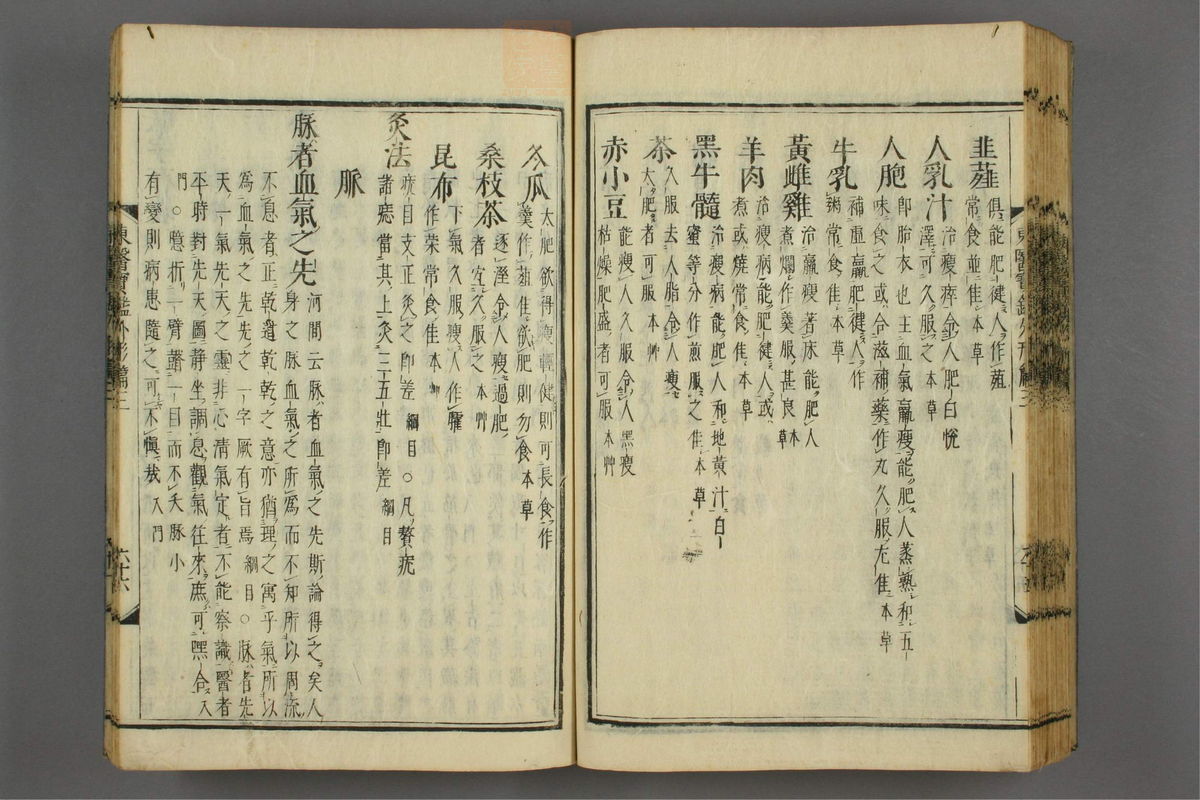 韭薤 俱能肥健人作葅
常食並佳 本草
人乳汁 治瘦瘁令人肥白悅
澤可久服之 本草
人胞 即胎衣也主血氣羸瘦能肥人蒸熟和五
味食之或合滋補藥作丸久服尤佳 本草
牛乳 補虛羸肥健人作
粥常食佳 本草
黃雌雞 治羸瘦著床能肥人
煮爛作羹服甚良 本草
羊肉 治瘦病能肥健人或
煮或燒常食佳 本草
黑牛髓 治瘦病能肥人和地黃汁白
蜜等分作煎服之佳 本草
茶 久服去人脂令人瘦
太肥者可服 本艸
赤小豆 能瘦人久服令人黑瘦
枯燥肥盛者可服 本艸
冬瓜 太肥欲得瘦輕健則可長食作
羹作葅佳欲肥則勿食 本草
桑枝茶 逐濕令人瘦過肥
者宜久服之 本艸
昆布 下氣久服瘦人作臛
作菜常食佳 本艸
灸法 疣目支正灸之即差 綱目 ○凡贅疣
諸痣當其上灸三五壯即差 綱目
脈
脉者血氣之先 河間云脉者血氣之先斯論得之矣人
身之脉血氣之所爲而不知所以周流
不息者正乾道乾乾之意亦猶理之寓乎氣所以
爲血氣之先先之一字厥有旨焉 綱目 ○脉者先
天一氣先天之靈非心淸氣定者不能察識醫者
平時對先天圖靜坐調息觀氣往來庶可嘿合 入
門 ○臆折一臂瞽一目而不夭脉小
有變則病患隨之可不愼哉 入門
東醫寶鑑外形篇三
六十六